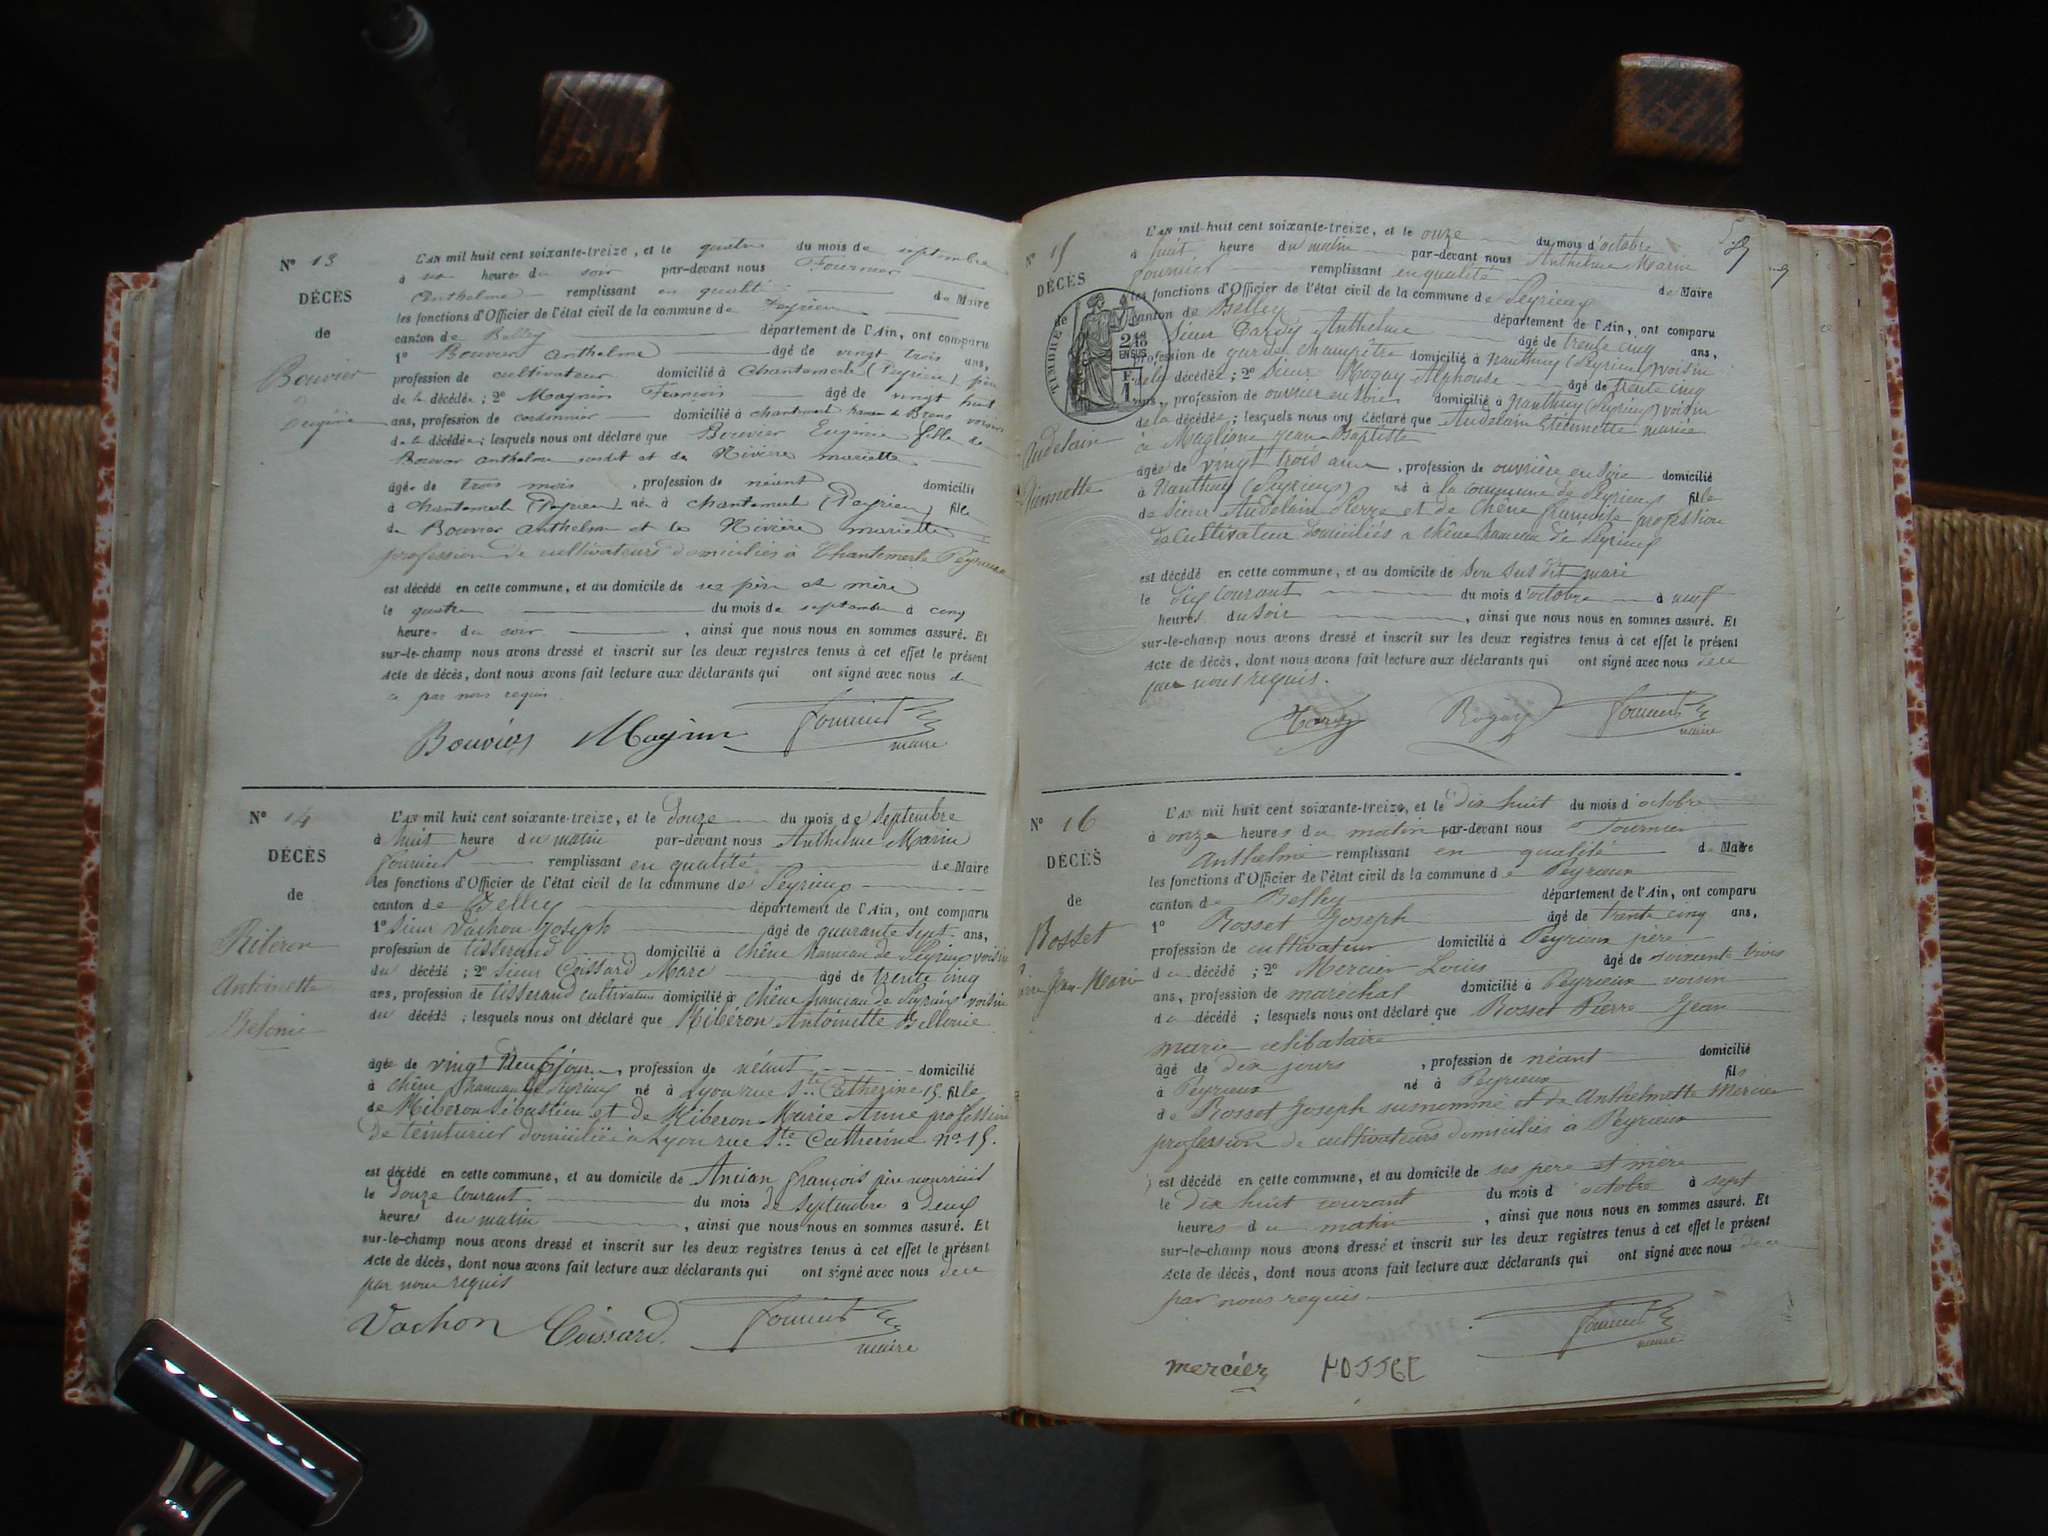 N° 13
DÉCÈS
de
Bouvier
Eugénie
L'AN mil huit cent soixante-treize, et le quatre du mois de septembre
à heures du soir par-devant nous Fournier
Anthelme remplissant en qualité de Maire
les fonctions d'Officier de l'état civil de la commune de Peyrieu
canton de Belley département de l'Ain, ont comparu
1° Bouvier Anthelme âgé de vingt trois ans,
profession de cultivateur domicilié à Chantemerle (Peyrieu) père
de la décédée; 2° Magnin François âgé de vingt huit
ans, profession de cordonnier domicilié à chantemerle hameau de Brens voisin
de la décédée; lesquels nous ont déclaré que Bouvier Eugénie fille de
Bouvier anthelme susdit et de Rivière mariette
âgée de trois mois, profession de néant domicilié
à Chantemerle (Peyrieu) née à chantemerle (Peyrieu) fille
de Bouvier anthelme et de Rivière mariette
profession de cultivateurs domiciliés à Chantemerle Peyrieu
est décédé en cette commune, et au domicile de ses père et mère
le quatre du mois de septembre à cinq
heures du soir, ainsi que nous nous en sommes assuré. Et
sur-le-champ nous avons dressé et inscrit sur les deux registres tenus à cet effet le présent
Acte de décès, dont nous avons fait lecture aux déclarants qui ont signé avec nous de
ce par nous requis
Bouvier Magnin Fournier
maire
N° 14
DÉCÈS
de
Riberon
Antoinette
Belonie
L'AN mil huit cent soixante-treize, et le douze du mois de septembre
à huit heure du matin par-devant nous Anthelme Marin
Fournier remplissant en qualité de Maire
les fonctions d'Officier de l'état civil de la commune de Peyrieux
canton de Belley département de l'Ain, ont comparu
1° Sieur Vachon Joseph âgé de quarante sept ans,
profession de tisserand domicilié à Chêne hameau de Peyrieux voisin
du décédé; 2° Sieur Coissard Marc âgé de trente cinq
ans, profession de tisserand cultivateur domicilié à chêne hameau de Peyrieux voisin
du décédé; lesquels nous ont déclaré que Riberon Antoinette Bellonie
âgée de vingt Neuf jour, profession de néant domicilié
à chêne hameau de Peyrieux né à Lyon rue Ste Catherine 15. fille
de Riberon Sébastien et de Riberon Marie Anne profession
de teinturier domiciliée à Lyon rue Ste Catherine no 15.
est décédé en cette commune, et au domicile de Ancian françois père nourricié
le douze courant du mois de septembre à deux
heures du matin, ainsi que nous nous en sommes assuré. Et
sur-le-champ nous avons dressé et inscrit sur les deux registres tenus à cet effet le présent
Acte de décès, dont nous avons fait lecture aux déclarants qui ont signé avec nous de ce
par nous requis
Vachon Coissard Fournier
maire
N° 15
DÉCÈS
de
TIMBRE
2/10 EN SUS
F. 1
Audelain
Etiennette
L'AN mil huit cent soixante-treize, et le onze du mois d'octobre
à huit heure du matin par-devant nous Anthelme Marin
Fournier remplissant en qualité de Maire
les fonctions d'Officier de l'état civil de la commune de Peyrieux
canton de Belley département de l'Ain, ont comparu
Sieur Tardy Anthelme âgé de trente cinq ans,
profession de garde champêtre domicilié à Nanthuy (Peyrieux) voisin
de la décédée; 2° Sieur Rogay Alphonse âgé de trente cinq
ans, profession de ouvrier en soie domicilié à Nanthuy (Peyrieux) voisin
de la décédée; lesquels nous ont déclaré que Audelain Etiennette mariée
à Maglione Jean Baptiste
âgée de vingt trois ans, profession de ouvrière en soie domicilié
à Nanthuy (Peyrieux) né à la commune de Peyrieux fille
de sieur Audelain Pierre et de Chêne profession
de Cultivateur domiciliés a chêne hameau de Peyrieux
est décédé en cette commune, et au domicile de son sus dit mari
le dix courant du mois d'octobre à neuf
heures du soir, ainsi que nous nous en sommes assuré. Et
sur-le-champ nous avons dressé et inscrit sur les deux registres tenus à cet effet le présent
Acte de décès, dont nous avons fait lecture aux déclarants qui ont signé avec nous de ce
par nous requis.
Tardy Rogay Fournier
maire
N° 16
DÉCÈS
de
Rosset
Pierre Jean-Marie
L'AN mil huit cent soixante-treize, et le Dix huit du mois d'octobre
à onze heures du matin par-devant nous Fournier
Anthelme remplissant en qualité de Maire
les fonctions d'Officier de l'état civil de la commune de Peyrieux
canton de Belley département de l'Ain, ont comparu
1° Rosset Joseph âgé de trente cinq ans,
profession de cultivateur domicilié à Peyrieux père
du décédé; 2° Mercier Louis âgé de soixante trois
ans, profession de maréchal domicilié à Peyrieux voisin
du décédé; lesquels nous ont déclaré que Rosset Pierre Jean
marie célibataire
âgé de dix jours, profession de néant domicilié
à Peyrieux né à Peyrieux fil
de Rosset Joseph surnommé et de Anthelmette Mercier
profession de cultivateurs domiciliés à Peyrieux
est décédé en cette commune, et au domicile de ses père et mère
le dix huit courant du mois d'octobre à sept
heures du matin, ainsi que nous nous en sommes assuré. Et
sur-le-champ nous avons dressé et inscrit sur les deux registres tenus à cet effet le présent
Acte de décès, dont nous avons fait lecture aux déclarants qui ont signé avec nous de ce
par nous requis.
Fournier
maire
mercier ROSSET